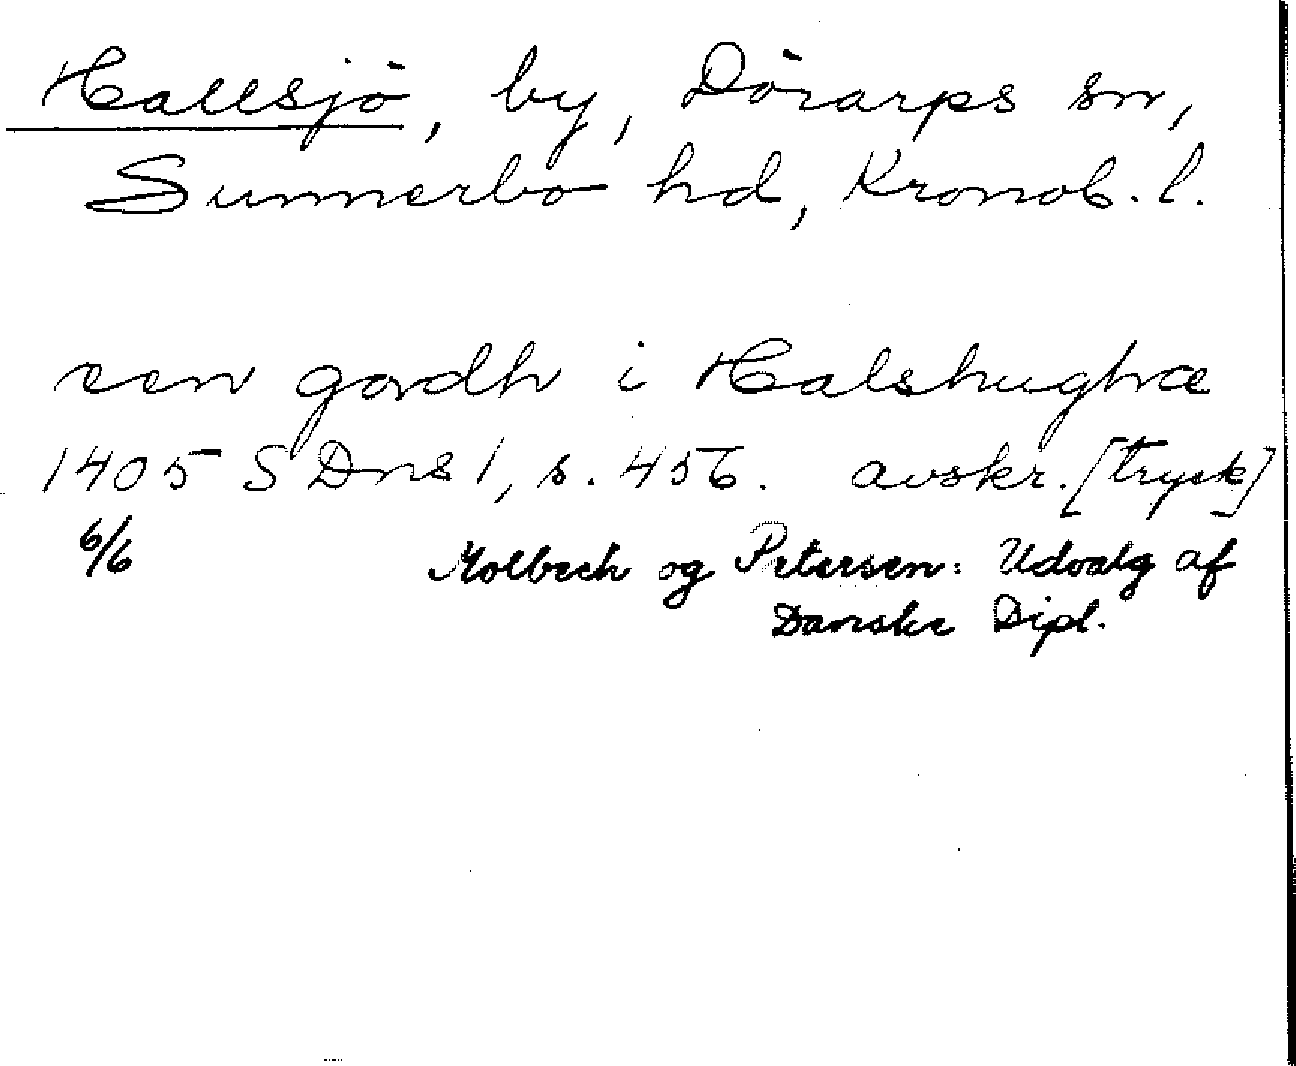 Hallsjö, by, Dörarps sn,
Sunnerbo hd, Kronob. l.
een gordh i Halshughæ
1405 SDns1, s. 456. avskr. [tryck]
6/6 Molbech og Petersen: Udvalg af
Danske Dipl.